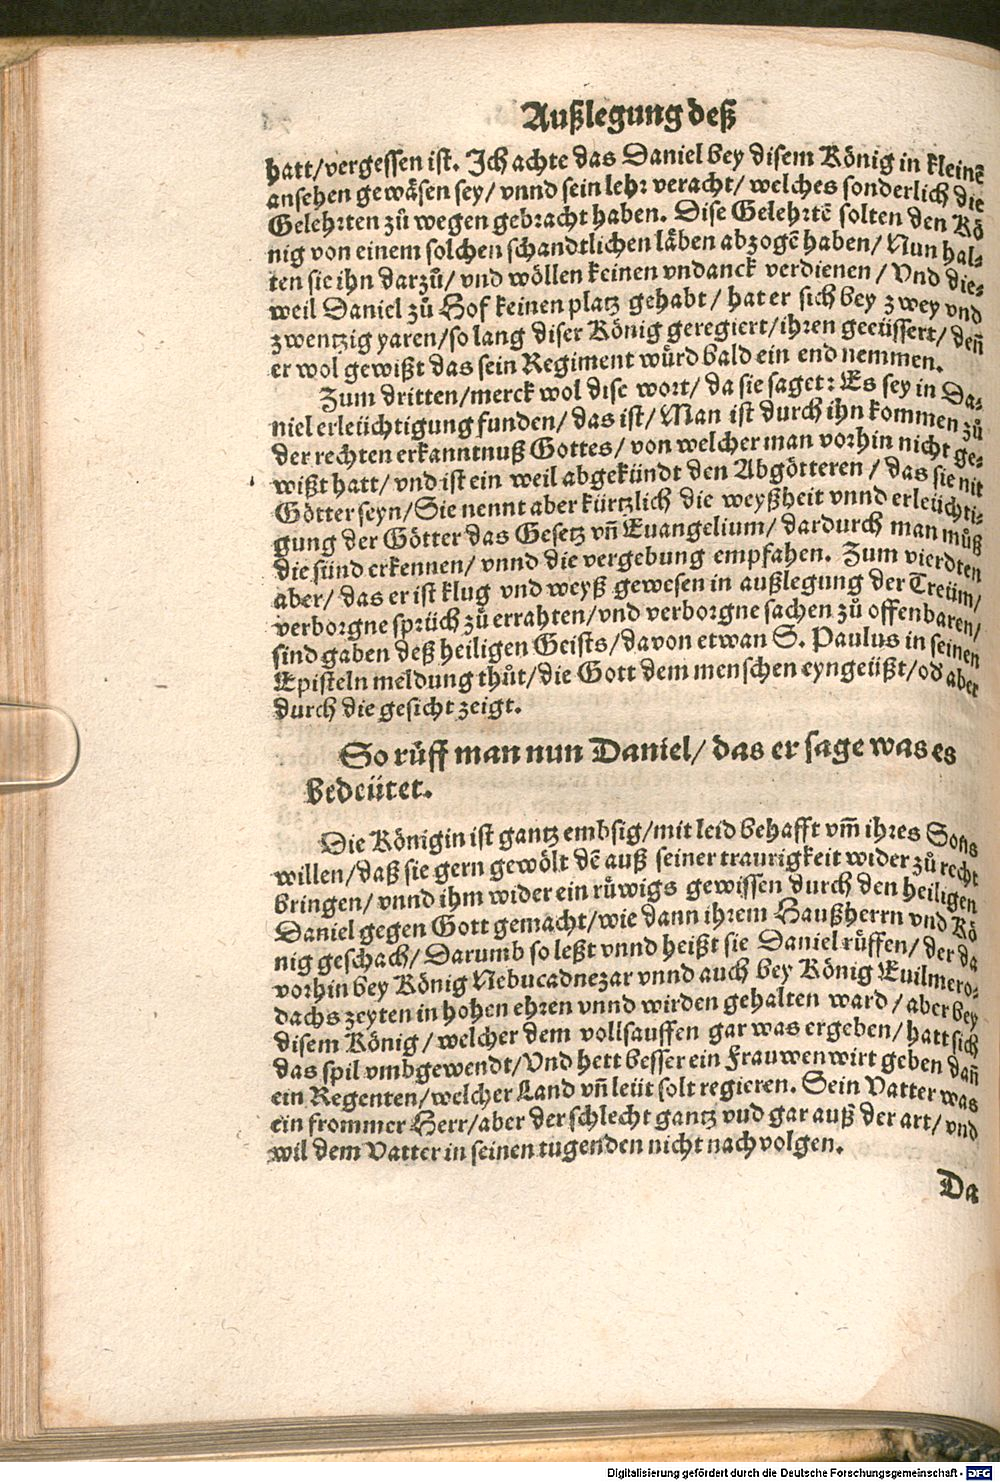 Außlegung deß
hatt/vergessen ist. Ich achte das Daniel bey disem König in kleinē
ansehen gewäsen sey/ vnnd sein lehr veracht/ welches sonderlich die
Gelehrten zů wegen gebracht haben. Dise Gelehrtē solten den Kö
nig von einem solchen schandtlichen läben abzogē haben/ Nun hal-
ten sie ihn darzů/ vnd wöllen keinen vndanck verdienen/ Vnd die-
weil Daniel zů Hof keinen platz gehabt/ hat er sich bey zwey vnd
zwentzig yaren/so lang diser König geregiert/ihren geeüssert/ deñ
er wol gewißt das sein Regiment würd bald ein end nemmen.
Zum dritten/merck wol dise wort/ da sie saget: Es sey in Da-
niel erleüchtigung funden/ das ist/ Man ist durch ihn kommen zů
der rechten erkanntnuß Gottes/ von welcher man vorhin nicht ge-
wißt hatt/ vnd ist ein weil abgekündt den Abgötteren/ das sie nit
Götter seyn/ Sie nennt aber kürtzlich die weyßheit vnnd erleüchti-
gung der Götter das Gesetz vñ Euangelium/ dardurch man můß
die sünd erkennen/ vnnd die vergebung empfahen. Zum vierdten
aber/ das er ist klug vnd weyß gewesen in außlegung der Treüm/
verborgne sprüch zů errahten/vnd verborgne sachen zů offenbaren/
sind gaben deß heiligen Geists/davon etwan S. Paulus in seinen
Episteln meldung thůt/die Gott dem menschen eyngeüßt/od aber
durch die gesicht zeigt.
So rüff man nun Daniel/ das er sage was es
bedeütet.
Die Königin ist gantz embsig/mit leid behafft vm̄ ihres Sons
willen/daß sie gern gewölt dē auß seiner traurigkeit wider zů recht
bringen/ vnnd ihm wider ein rüwigs gewissen durch den heiligen
Daniel gegen Gott gemacht/wie dann ihrem Haußherrn vnd Kö
nig geschach/ Darumb so leßt vnnd heißt sie Daniel rüffen/ der da
vorhin bey König Nebucadnezar vnnd auch bey König Euilmero-
dachs zeyten in hohen ehren vnnd wirden gehalten ward/ aber bey
disem König/ welcher dem vollsauffen gar was ergeben/ hatt sich
das spil vmbgewendt/ Vnd hett besser ein Frauwenwirt geben dañ
ein Regenten/welcher Land vñ leüt solt regieren. Sein Vatter was
ein frommer Herr/aber der schlecht gantz vud gar auß der art/ vnd
wil dem Vatter in seinen tugenden nicht nachvolgen.
Da
Digitalisierung gefördert durch die Deutsche Forschungsgemeinschaft - DFG